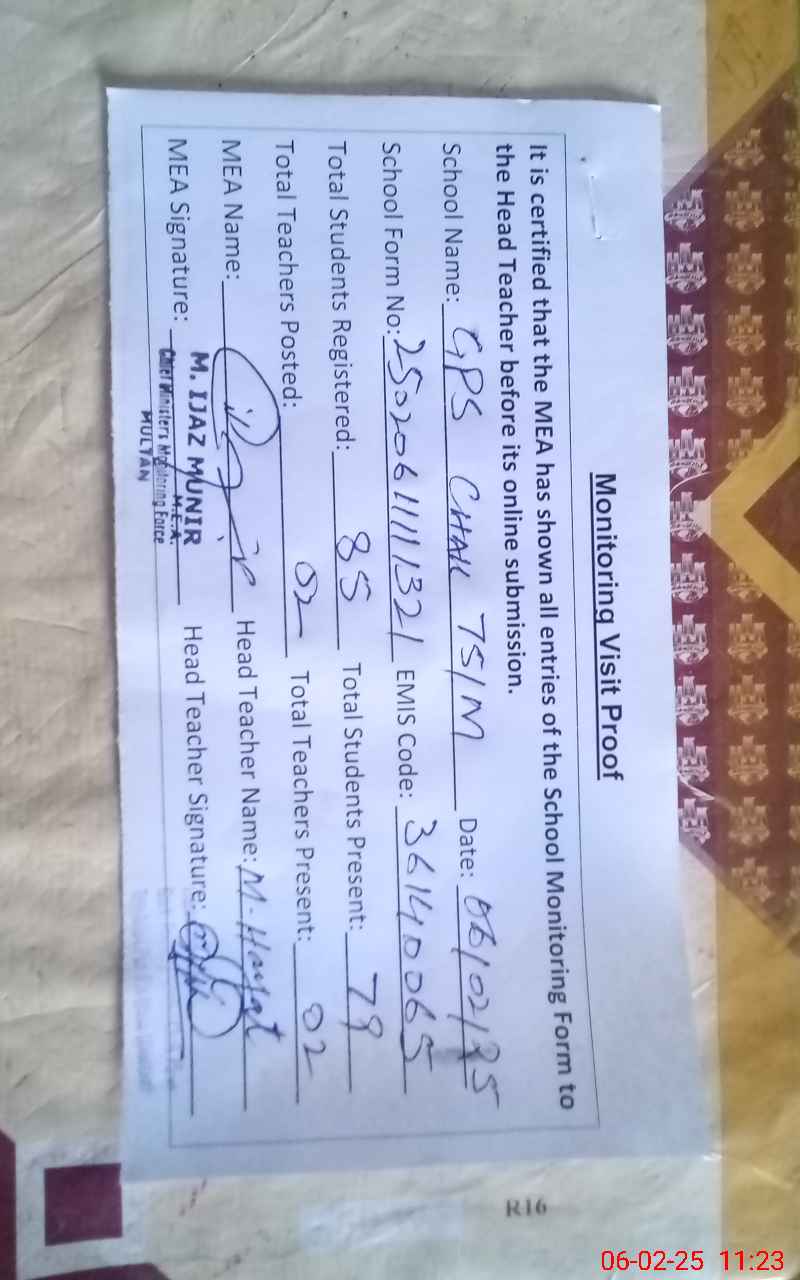 Monitoring Visit Proof
It is certified that the MEA has shown all entries of the School Monitoring Form to
the Head Teacher before its online submission.
School Name: GPS CHAK 75/M Date: 06/02/25
School Form No: 250206111111321 EMIS Code: 36140065
Total Students Registered: 85 Total Students Present: 79
Total Teachers Posted: 02 Total Teachers Present: 02
MEA Name: Head Teacher Name: M. Hayat
MEA Signature: Head Teacher Signature:
M. IJAZ MUNIR
M.E.A.
Chief Minister's Monitoring Force
MULTAN
R16
06-02-25 11:23